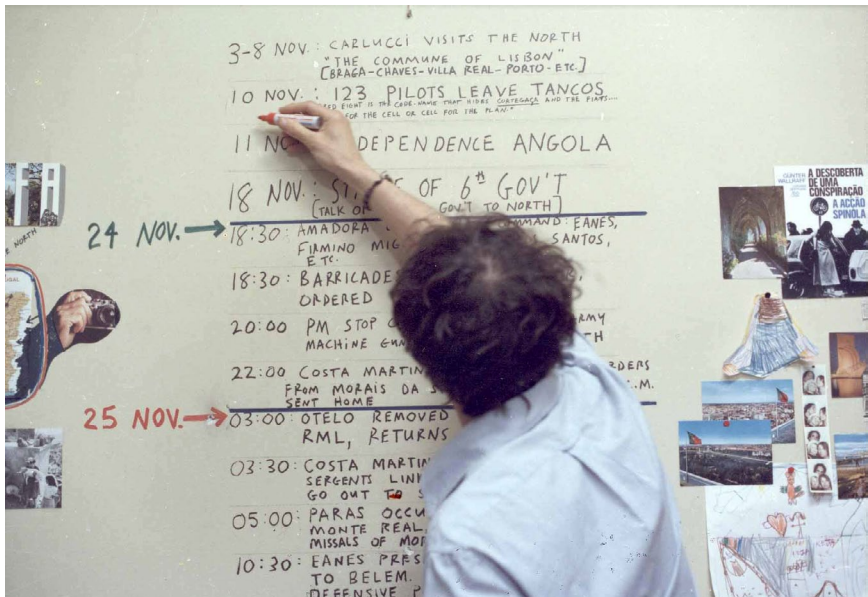 3-8 NOV.: CARLUCCI VISITS THE NORTH
"THE COMMUNE OF LISBON"
[BRAGA-CHAVES-VILLA REAL-PORTO-ETC.]
10 NOV.: 123 PILOTS LEAVE TANCOS
EIGHT IS THE CODE-NAME THAT HIDES CORTEGAÇA AND THE PLANS....
FOR THE CELL OR CELL FOR THE PLAN."
11 DEPENDENCE ANGOLA
18 NOV.: OF 6th GOV'T
[TALK GOV'T TO NORTH]
24 NOV.
18:30: AMADORA COMMAND: EANES,
FIRMINO SANTOS,
ETC.
18:30: BARRICADES
ORDERED
20:00 PM STOP
MACHINE
22:00 COSTA
FROM MORAIS DA
SENT HOME
25 NOV.
03:00: OTELO REMOVED
RML, RETURNS
03:30: COSTA
SERGENTS
GO OUT TO
05:00: PARAS
MONTE REAL,
MISSALS OF
10:30: EANES
TO BELEM.
DEFENSIVE
FA
NORTH
GÜNTER WALLRAFF
A DESCOBERTA
DE UMA
CONSPIRAÇÃO
A ACÇÃO
SPÍNOLA